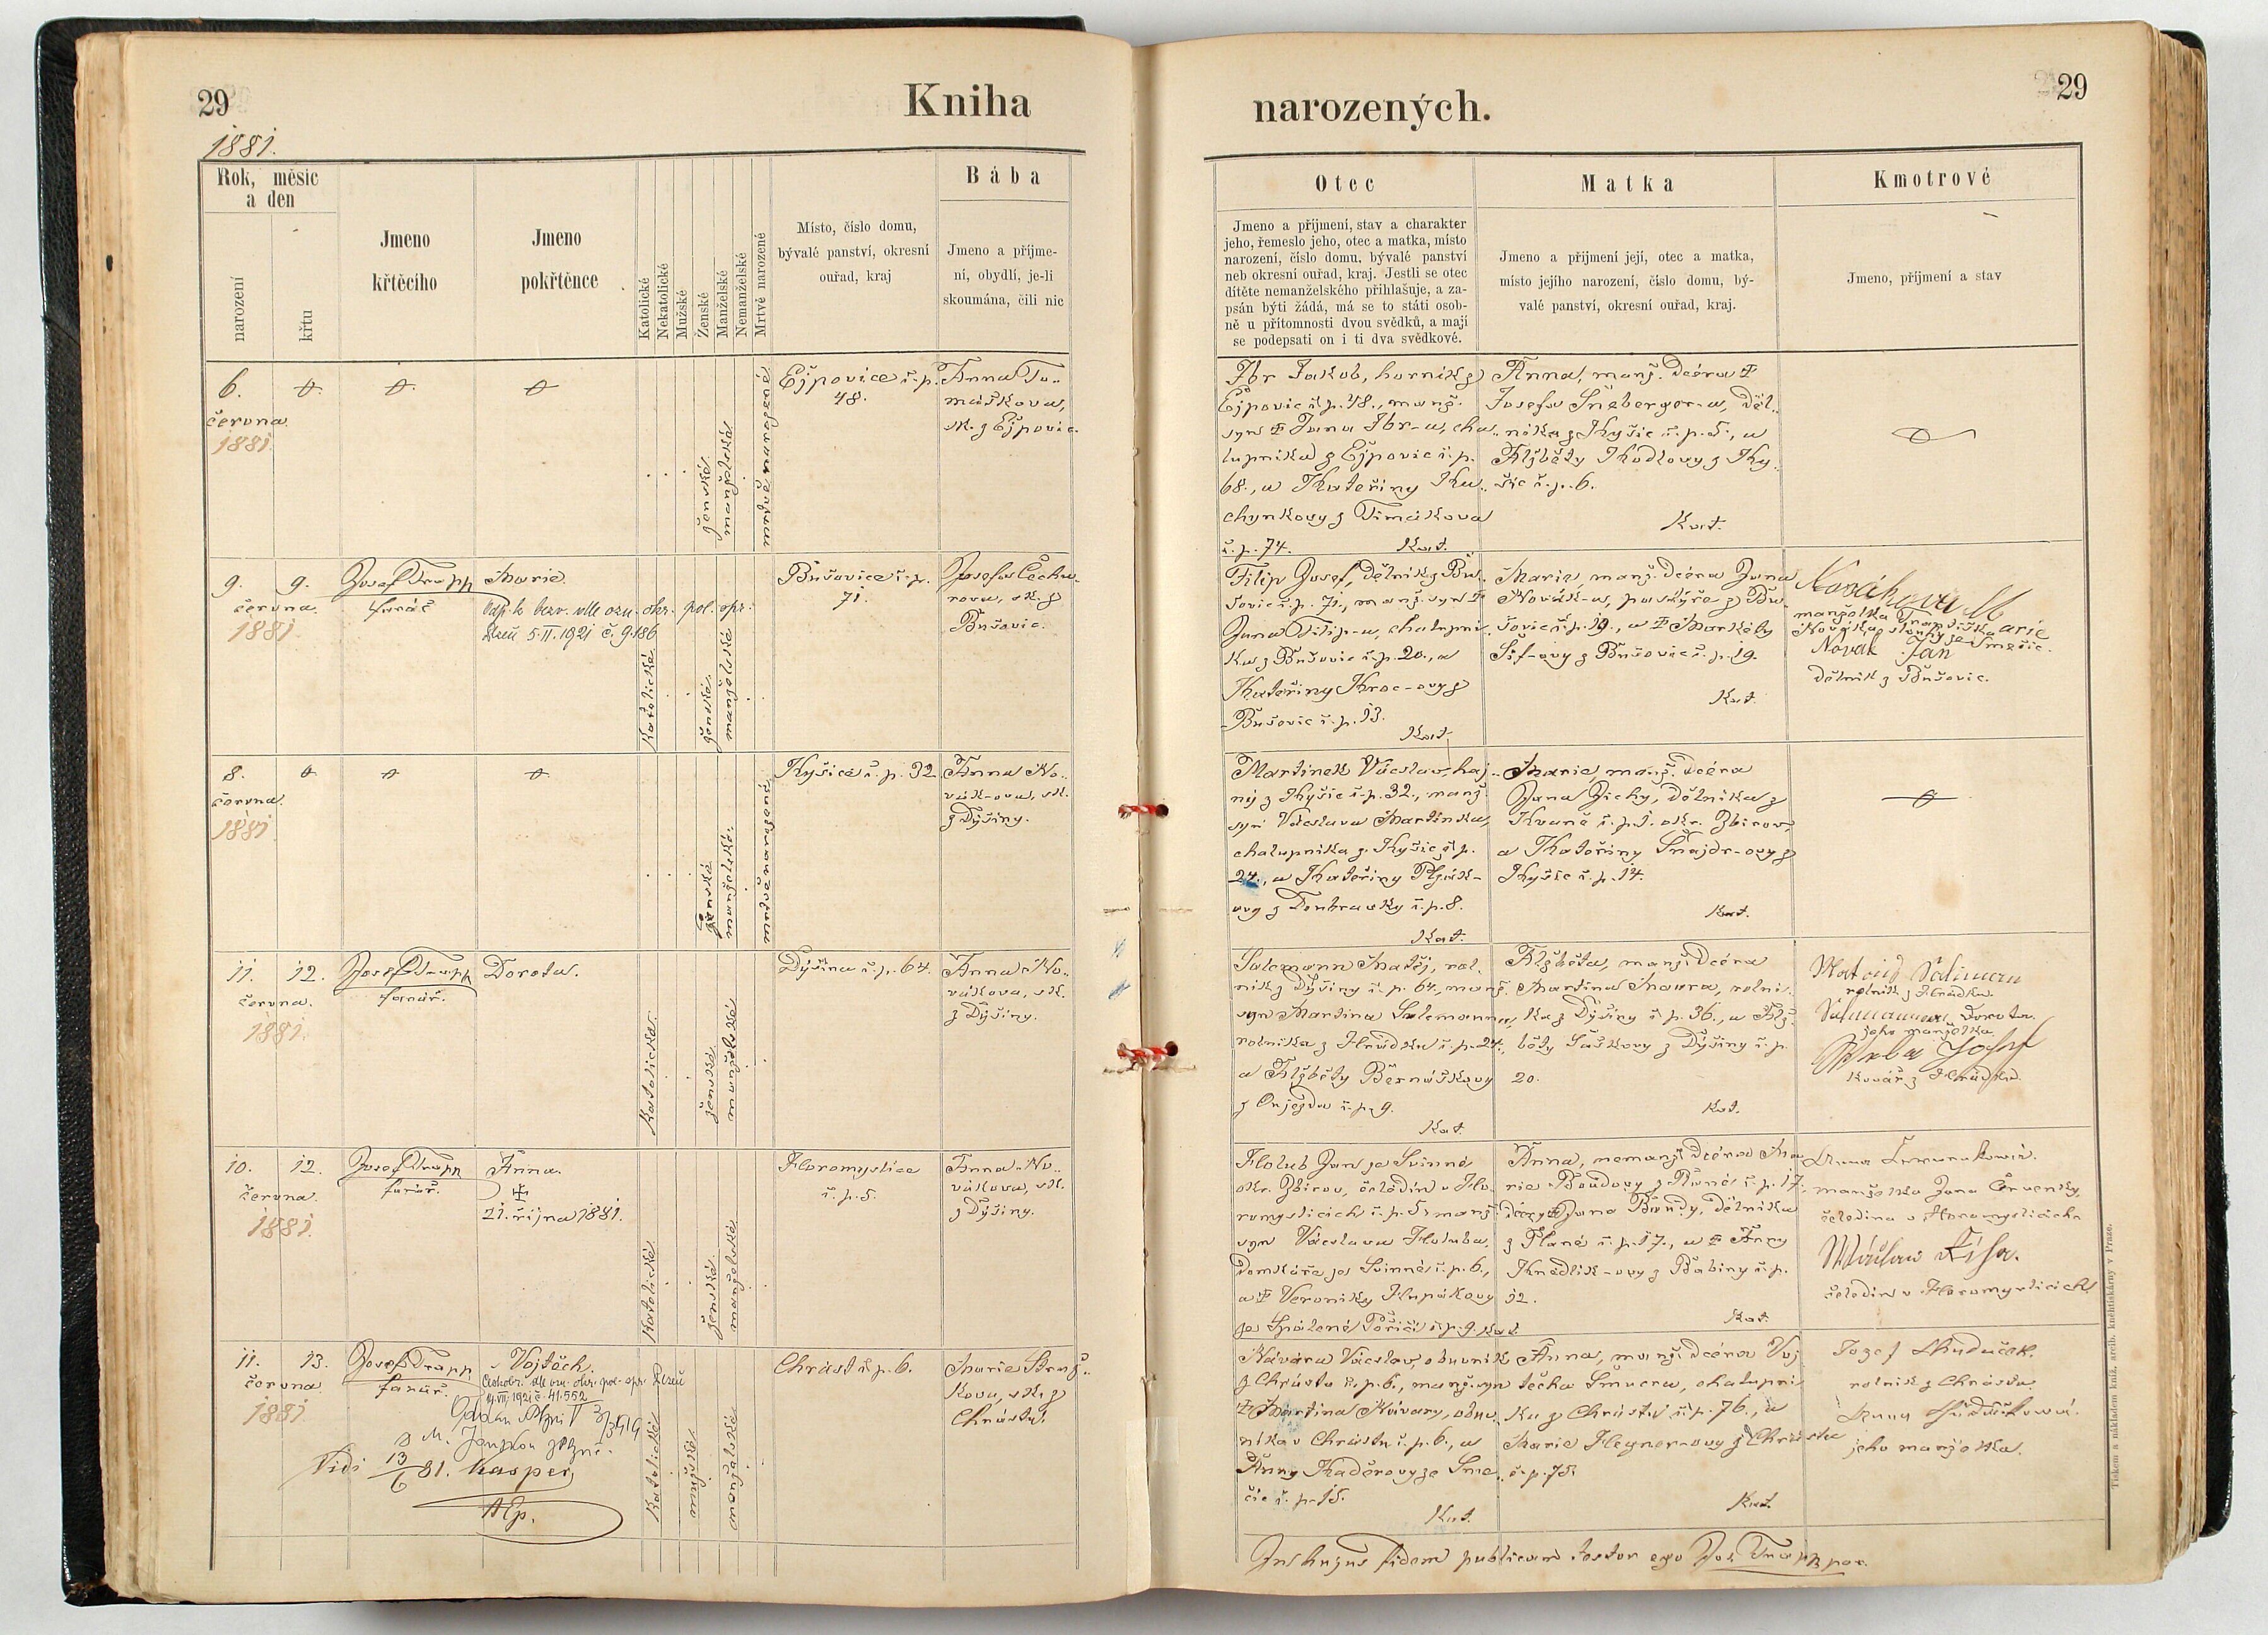 29
Kniha
1881.
Rok, měsíc
a den
narození
křtu
Jmeno
křtěcího
Jmeno
pokřtěnce
Katolické
Nekatolické
Mužské
Ženské
Manželské
Nemanželské
Mrtvě narozené
Místo, číslo domu,
bývalé panství, okresní
ouřad, kraj
Bába
Jmeno a příjme-
ní, obydlí, je-li
skoumána, čili nic
6.
června
1881.
ženské
manželské
mrtvě narozené
Ejpovice č. p.
48.
Anna To-
máškova,
sk. z Ejpovic.
9. 9.
června
1881
Josef Trapp
farář
Marie.
Odp. k bezv. dle ozn. okr. pol. spr.
Plzeň 5.II.1921 č. 9.186
Katolické
ženské
manželské
Bušovice č. p.
71.
Josefa Čechu-
rova, sk. z
Bušovic.
8.
června
1881
ženské
manželské
mrtvě narozené
Kyšice č. p. 32.
Anna No-
vák-ova, sk.
z Dýšiny.
11. 12.
června
1881.
Josef Trapp
farář.
Dorota.
Katolické
ženské
manželské
Dýšina č. p. 64.
Anna No-
vákova, sk.
z Dýšiny.
10. 12.
června
1881.
Josef Trapp
farář.
Anna.
21. října 1881.
Katolické
ženské
manželské
Horomyslice
č. p. 5.
Anna No-
vákova, sk.
z Dýšiny.
11. 13.
června
1881
Josef Trapp
farář.
Vojtěch.
4.VII.1921 č. 41.552
Vidi 13/6 81. Kasper,
Katolické
mužské
manželské
Chrást č. p. 6.
Marie
kova, sk. z
Chrástu.
29
narozených.
Otec
Jmeno a příjmení, stav a charakter
jeho, řemeslo jeho, otec a matka, místo
narození, číslo domu, bývalé panství
neb okresní ouřad, kraj. Jestli se otec
dítěte nemanželského přihlašuje, a za-
psán býti žádá, má se to státi osob-
ně u přítomnosti dvou svědků, a mají
se podepsati on i ti dva svědkové.
Matka
Jmeno a přijmení její, otec a matka,
místo jejího narození, číslo domu, bý-
valé panství, okresní ouřad, kraj.
Kmotrové
Jmeno, příjmení a stav
Ibr Jakob, horník z
Ejpovic č. p. 48., manž.
syn † Jana Ibr-a, cha-
lupníka z Ejpovic č. p.
68., a Kateřiny Ku-
chynkovy z Timákova
č. p. 74. Kat.
Anna, manž. dcéra †
Josefa Šneberger-a, děl-
níka z Kyšic č. p. 5., a
Alžběty Kodlovy z Ky-
šic č. p. 6.
Kat.
Filip Josef, dělník z Bu-
šovic č. p. 71., manž. syn †
Jana Filip-a, chalupní-
ka z Bušovic č. p. 20., a
Kateřiny Kroc-ovy z
Bušovic č. p. 13.
Kat.
Marie, manž. dcéra Jana
Novák-a, pastýře z Bu-
šovic č. p. 19., a † Markéty
Šif-ovy z Bušovic č. p. 19.
Kat.
Nováková Marie
manželka Františka
Nováka, ze Smečic.
Novák Jan
dělník z Bušovic.
Martínek Václav, haj-
ný z Kyšic č. p. 32., manž.
syn Václava Martínka,
chalupníka z Kyšic č. p.
24., a Kateřiny
ovy z Doubravky č. p. 8.
Kat.
Marie, manž. dcéra
Jana Zichy, dělníka z
č. p. 1. okr. Zbirov,
a Kateřiny Šnajdr-ovy z
Kyšic č. p. 14.
Kat.
Salomann Matěj, rol-
ník z Dýšiny č. p. 64., manž.
syn Martina Salomanna,
rolníka z Hrádku č. p. 24.,
a Alžběty Bernáškovy
z č. p. 9.
Kat.
Alžběta, manž. dcéra
Martina Maura, rolní-
ka z Dýšiny č. p. 36., a Alž-
běty Šaškovy z Dýšiny č. p.
20.
Kat.
rolník z Hrádku.
Dorota
jeho manželka
Josef
kovář z Hrádku.
Holub Jan ze Svinné
okr. Zbirov, čeledín v Ho-
romyslicích č. p. 5. manž.
syn Václava Holuba,
domkáře ze Svinné č. p. 6.,
a † Veroniky Hlupákovy
ze Spálené Poříčí č. p. 9. Kat.
Anna, nemanž. dcéra Ma-
rie Boudovy z č. p. 17.
dcery † Jana Boudy, dělníka
z Plané č. p. 17., a † Anny
Knedlík-ovy z Babiny č. p.
12.
Kat.
manželka Jana Červenky,
čeledína v Horomyslicích
čeledín v Horomyslicích
Kávára Václav, obuvník
z Chrástu č. p. 6., manž. syn
† Martina Kávary, obuv-
níka v Chrástu č. p. 6., a
Anny Kadérovy ze Sme-
čic č. p. 15.
Kat.
Anna, manž. dcéra Voj-
těcha Šmucra, chalupní-
ka z Chrástu č. p. 76., a
Marie Hegner-ovy z Chrástu
č. p. 75.
Kat.
Jozef
rolník z Chrástu.
jeho manželka.
In hujus fidem publicam testor ego Jos. Trapp par.
Tiskem a nákladem kníž. arcib. kněhtiskárny v Praze.